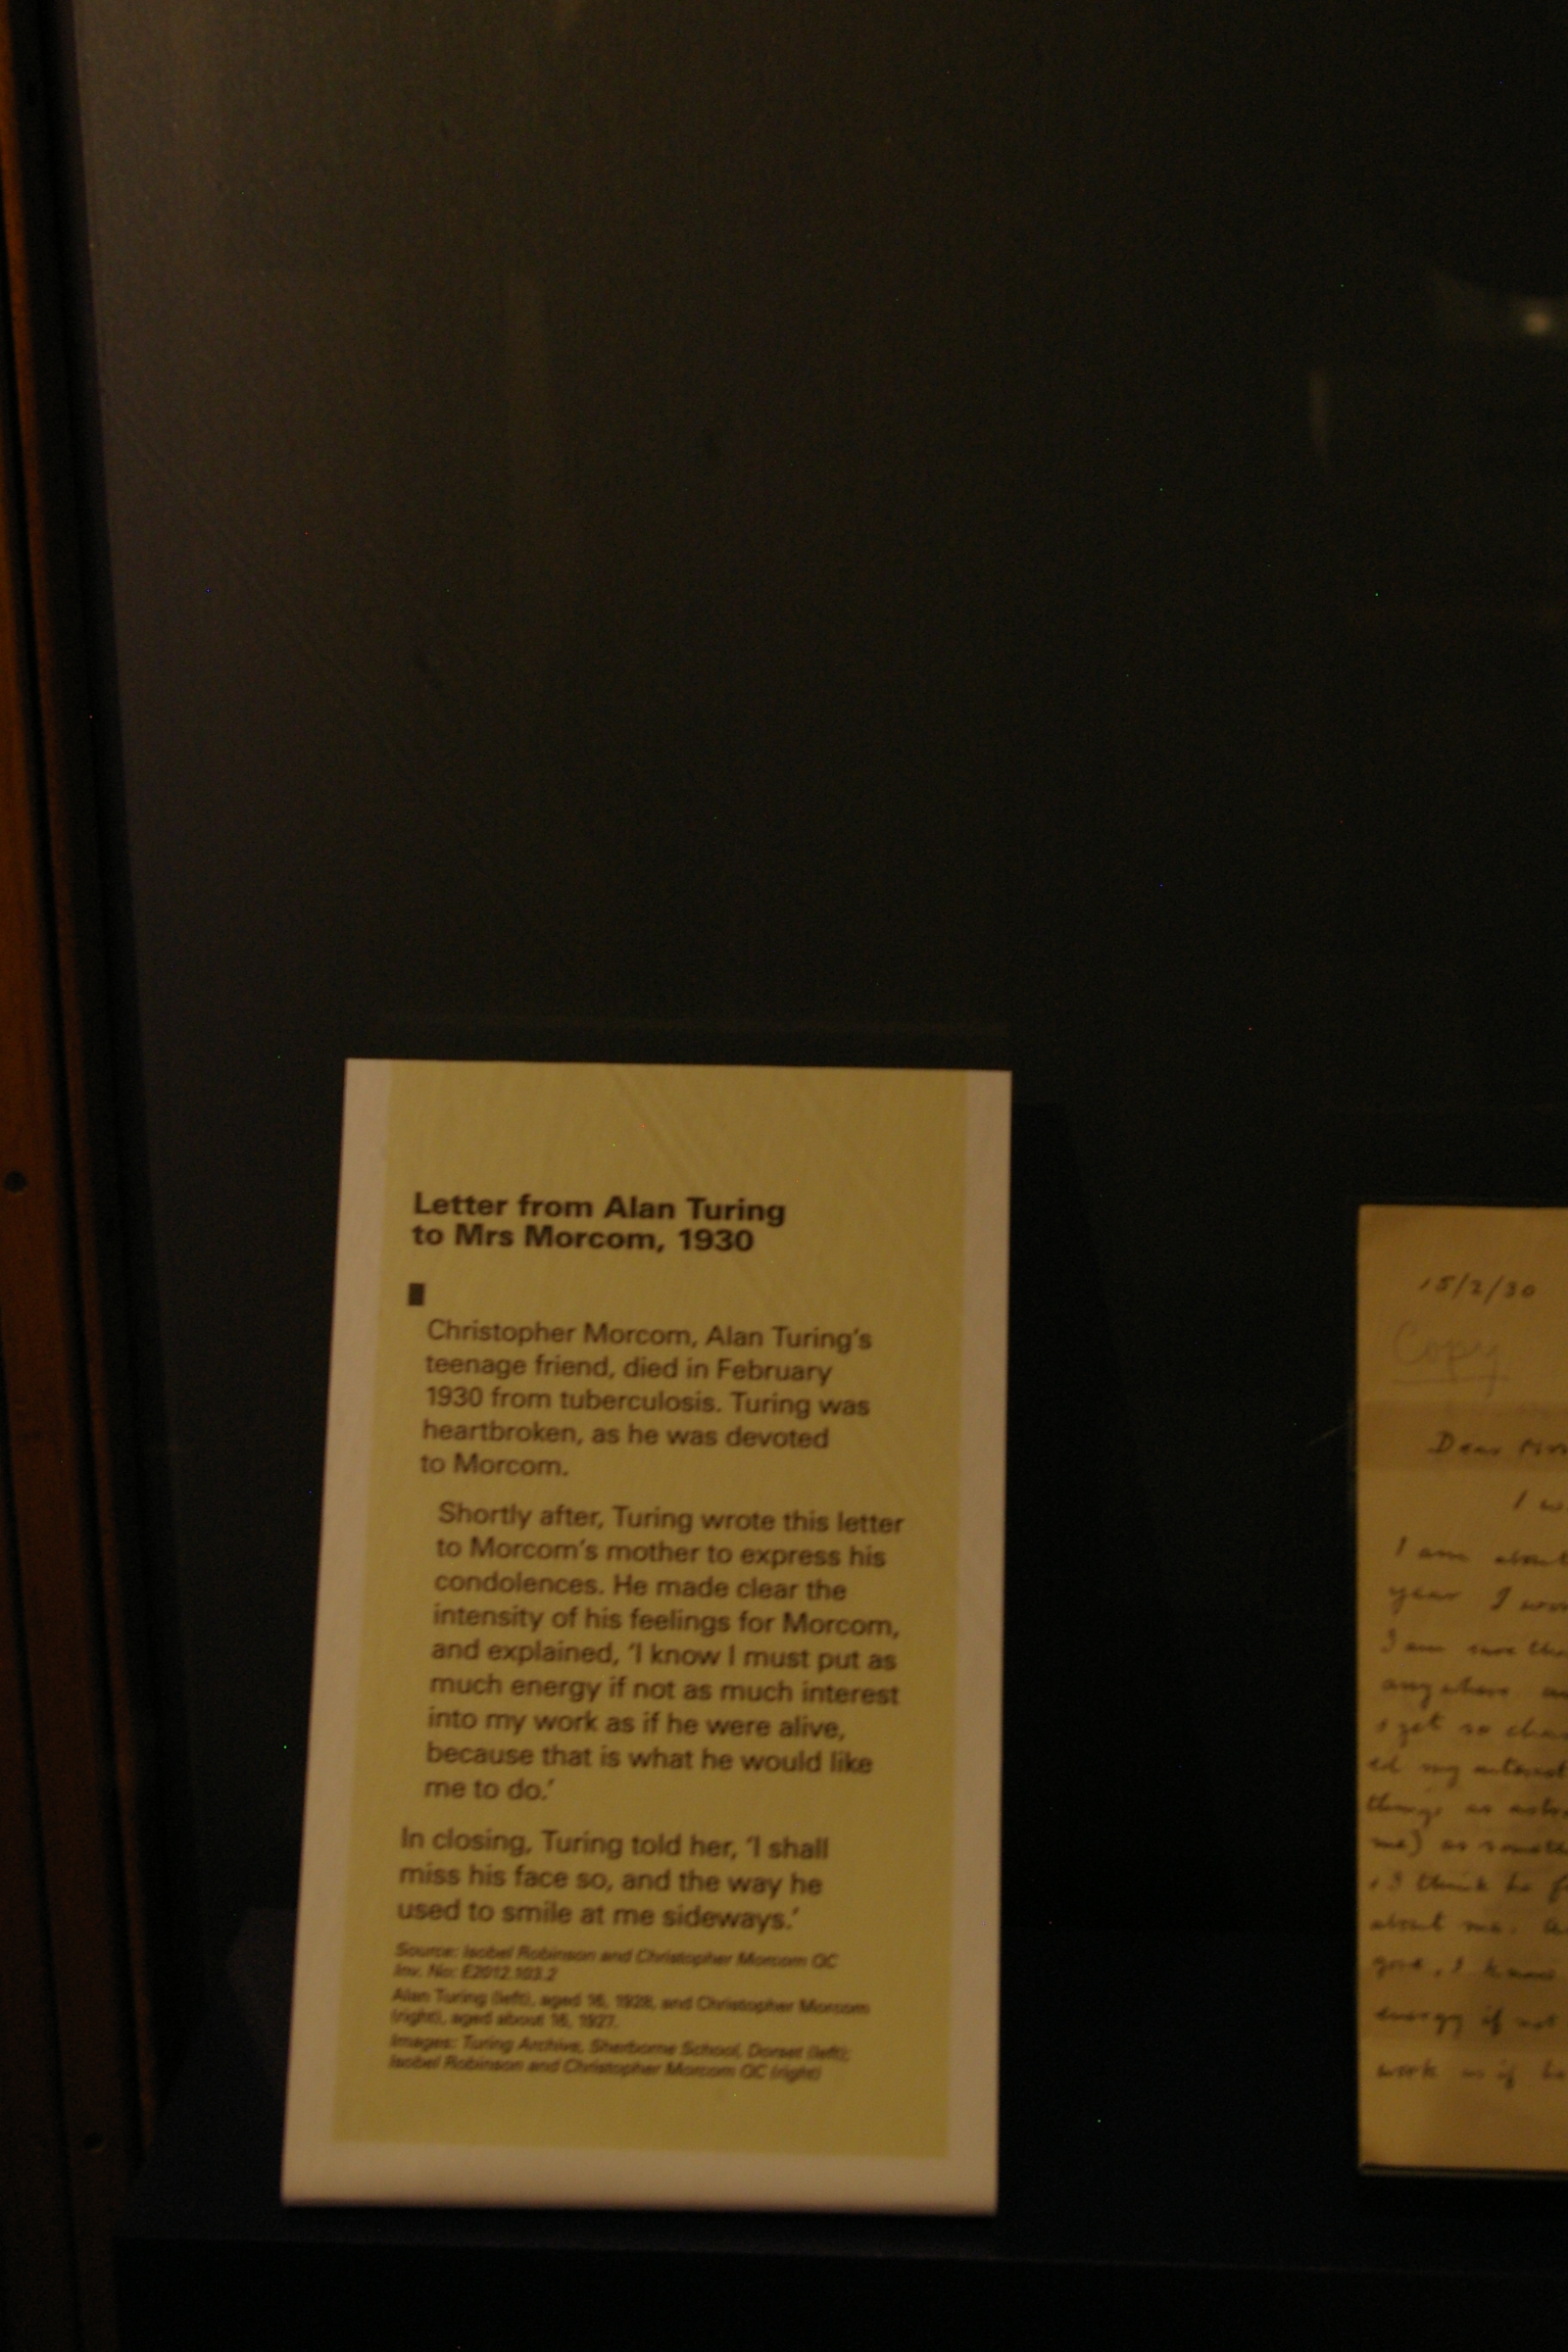 Letter from Alan Turing
to Mrs Morcom, 1930
Christopher Morcom, Alan Turing's
teenage friend, died in February
1930 from tuberculosis. Turing was
heartbroken, as he was devoted
to Morcom.
Shortly after, Turing wrote this letter
to Morcom's mother to express his
condolences. He made clear the
intensity of his feelings for Morcom,
and explained, 'I know I must put as
much energy if not as much interest
into my work as if he were alive,
because that is what he would like
me to do.'
In closing, Turing told her, 'I shall
miss his face so, and the way he
used to smile at me sideways.'
Source: Isobel Robinson and Christopher Morcom QC
Inv. No: E2012.103.2
Alan Turing (left), aged 16, 1928, and Christopher Morcom
(right), aged about 16, 1927.
Images: Turing Archive, Sherborne School, Dorset (left);
Isobel Robinson and Christopher Morcom QC (right)
15/2/30
Copy
Dear
I
I am about
year I
I am sure
anywhere
get so
my
things as
me) as
I think he
about me.
I know
energy if not
work as if